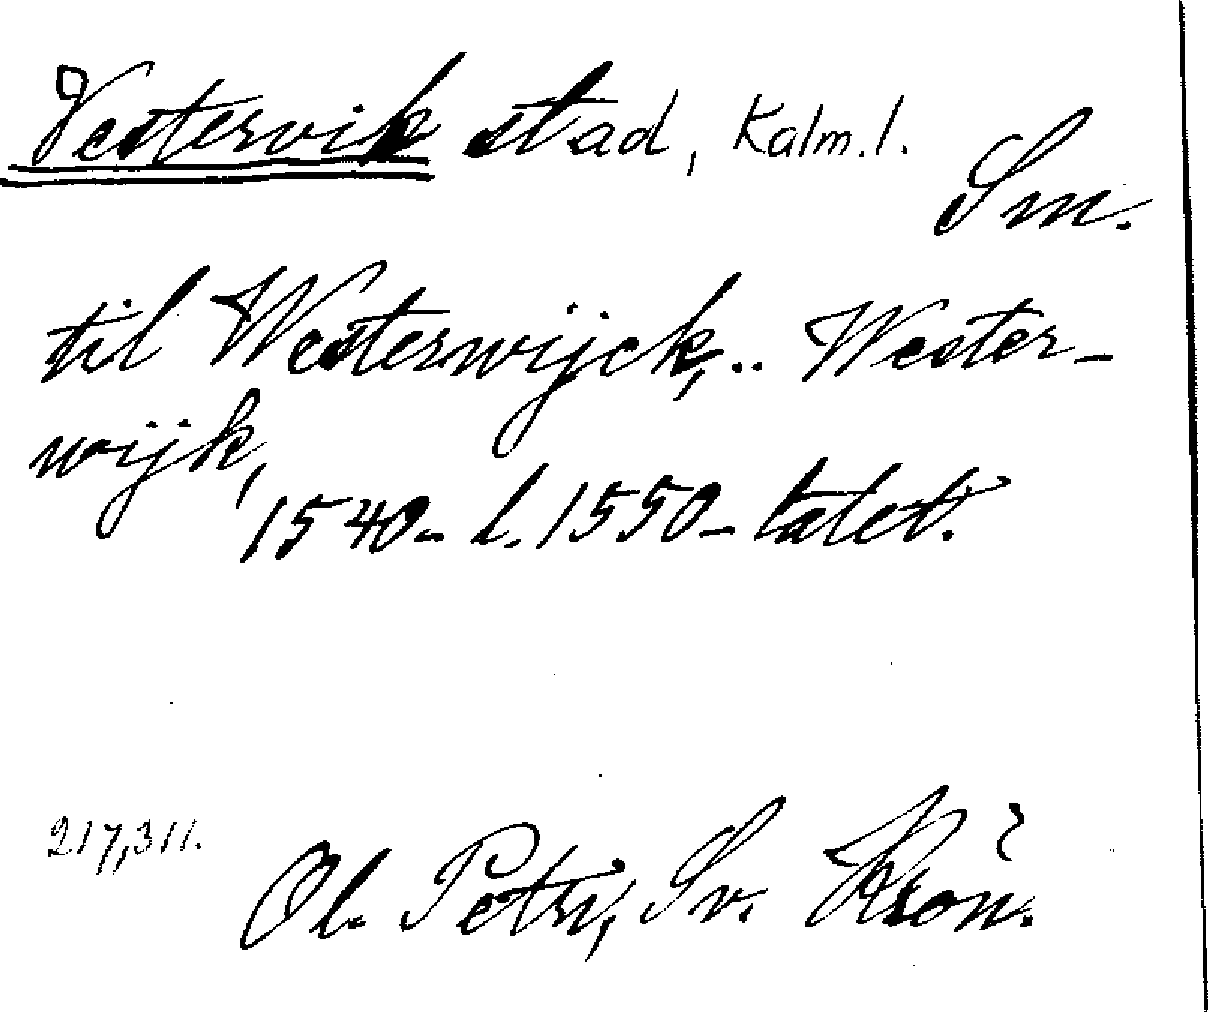 Vestervik stad, Kalm.l.
Sm.
til Westerwijck,.. Wester-
wijk,
1540- l. 1550-talet.
217,311.
Ol. Petri, Sv. Krön.